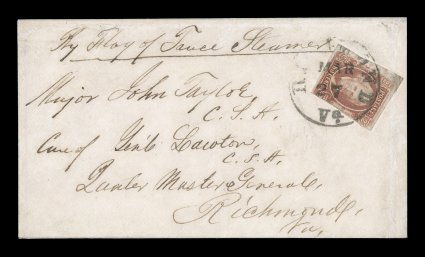 By Flag of Truce Steamer
Major John Tayloe,
C. S. A.
Care of Gen'l Lawton,
C. S. A.
Quarter Master General,
Richmond,
Va.
VA